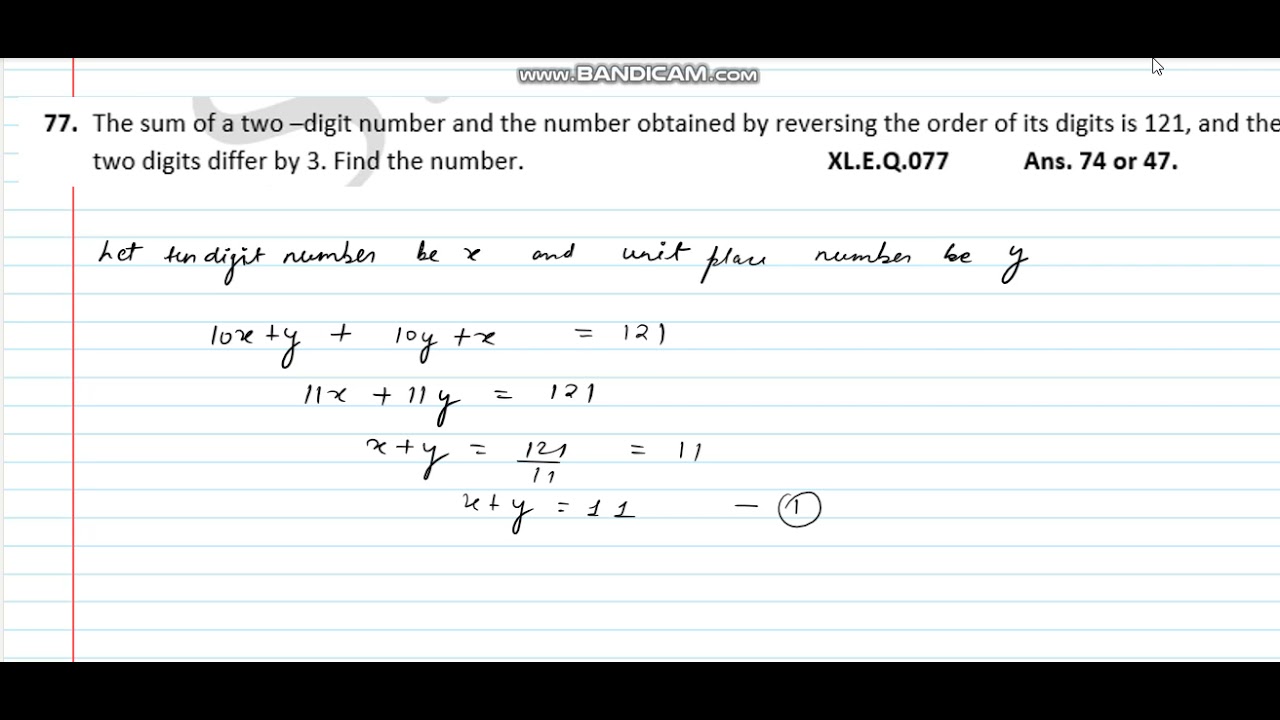 www.BANDICAM.com
77. The sum of a two –digit number and the number obtained by reversing the order of its digits is 121, and the
two digits differ by 3. Find the number. XL.E.Q.077 Ans. 74 or 47.
Let ten digit number be x and unit place number be y
10x+y + 10y+x = 121
11x + 11y = 121
x+y = 121/11 = 11
x+y = 11 — ①